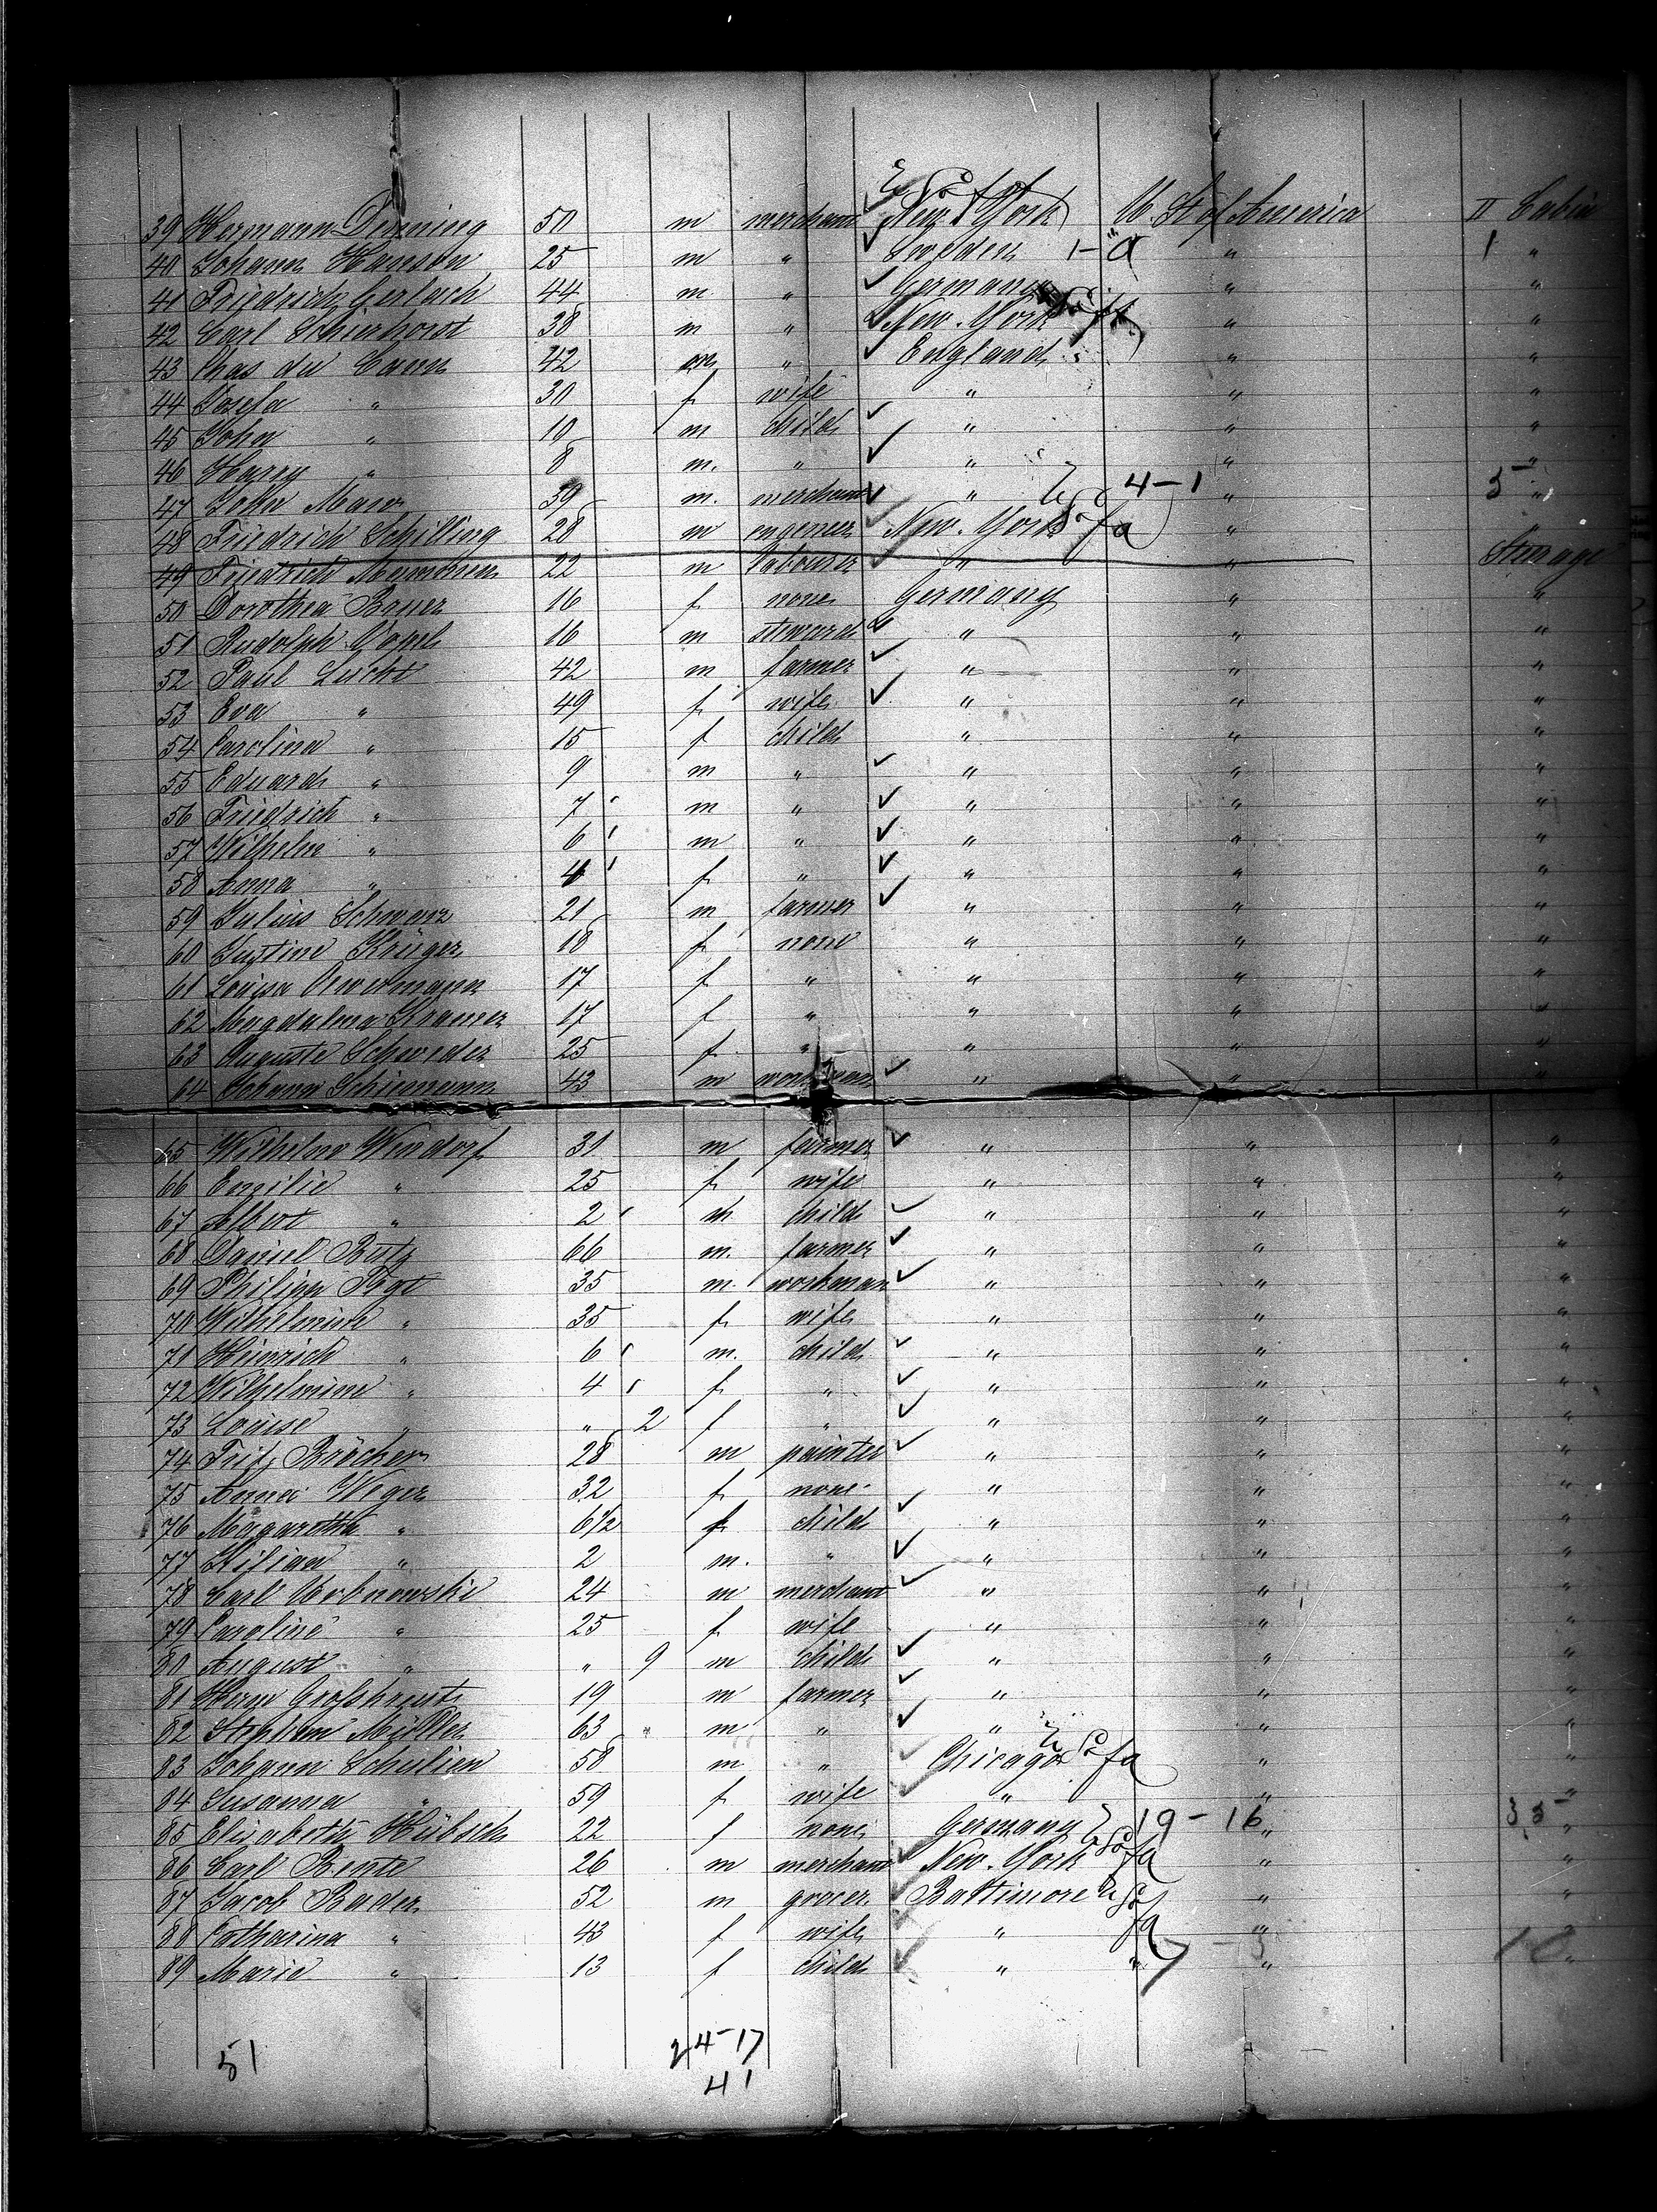 39 Hermann Denning 50 m merchant New York U. St of America II Cabin
40 Johann Hanson 25 m " Sweden 1- " 1 "
41 Friedrich Gerlach 44 m " Germany " "
42 Carl Schierhorst 38 m " New. York " "
43 Chas du Caen 42 m " England " "
44 Josefa " 30 f wife " " "
45 John " 10 m child " " "
46 Harry " 8 m. " " " "
47 John 39 m. merchant " 4-1 " 5 "
48 Friedrich Schilling 28 m engeneer New. York "
49 Friedrich 22 m labourer " " Steerage
50 Dorothea Bauer 16 f none Germany " "
51 Rudolph Vogel 16 m steward " " "
52 Paul Lucht 42 m farmer " " "
53 Eva " 49 f wife " " "
54 Carolina " 15 f child " " "
55 Eduard " 9 m " " " "
56 Friedrich " 7 m " " " "
57 Wilhelm " 6 m " " " "
58 Anna " 4 f " " " "
59 Julius Schwarz 21 m farmer " " "
60 Justine Krüger 18 f none " " "
61 Louisa 17 f " " " "
62 Magdalena Kramer 17 f " " " "
63 Auguste Schroeder 25 f " " " "
64 Johann Schiemann 43 m workman " " "
65 Wilhelm Windorf 31 m farmer " " "
66 Emilie " 25 f wife " " "
67 Albert " 2 m child " " "
68 Daniel Butz 66 m. farmer " " "
69 Philipp 35 m. workman " " "
70 Wilhelmine " 35 f wife " " "
71 Heinrich " 6 m. child " " "
72 Wilhelmine " 4 f " " " "
73 Louise " " 2 f " " " "
74 Fritz Bröcker 28 m painter " " "
75 Anna Weger 32 f none " " "
76 Magaretha " 6½ f child " " "
77 Kilian " 2 m. " " " "
78 Carl 24 m merchant " " "
79 Caroline " 25 f wife " " "
80 August " " 9 m child " " "
81 Herm 19 m farmer " " "
82 Stephan Müller 63 m " " " "
83 Johann Schulien 58 m " Chicago " "
84 Susanna " 59 f wife " " "
85 Elisabeth Hübsch 22 f none Germany 19-16 " 35 "
86 Carl Bente 26 m merchant New. York " "
87 Jacob Bader 52 m grocer Baltimore " "
88 Catharina " 43 f wife " " "
89 Marie " 13 f child " " 10 "
51 24-17
41